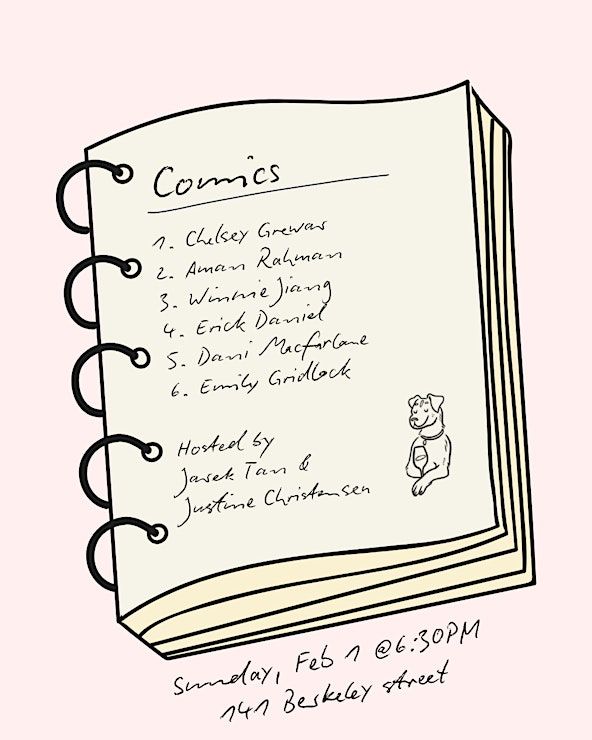 Comics
1. Chelsey Grewar
2. Aman Rahman
3. Winnie Jiang
4. Erick Daniel
5. Dani Macfarlane
6. Emily Gridlock
Hosted by
Jarek Tan &
Justine Christensen
Sunday, Feb 1 @6:30PM
141 Berkeley street